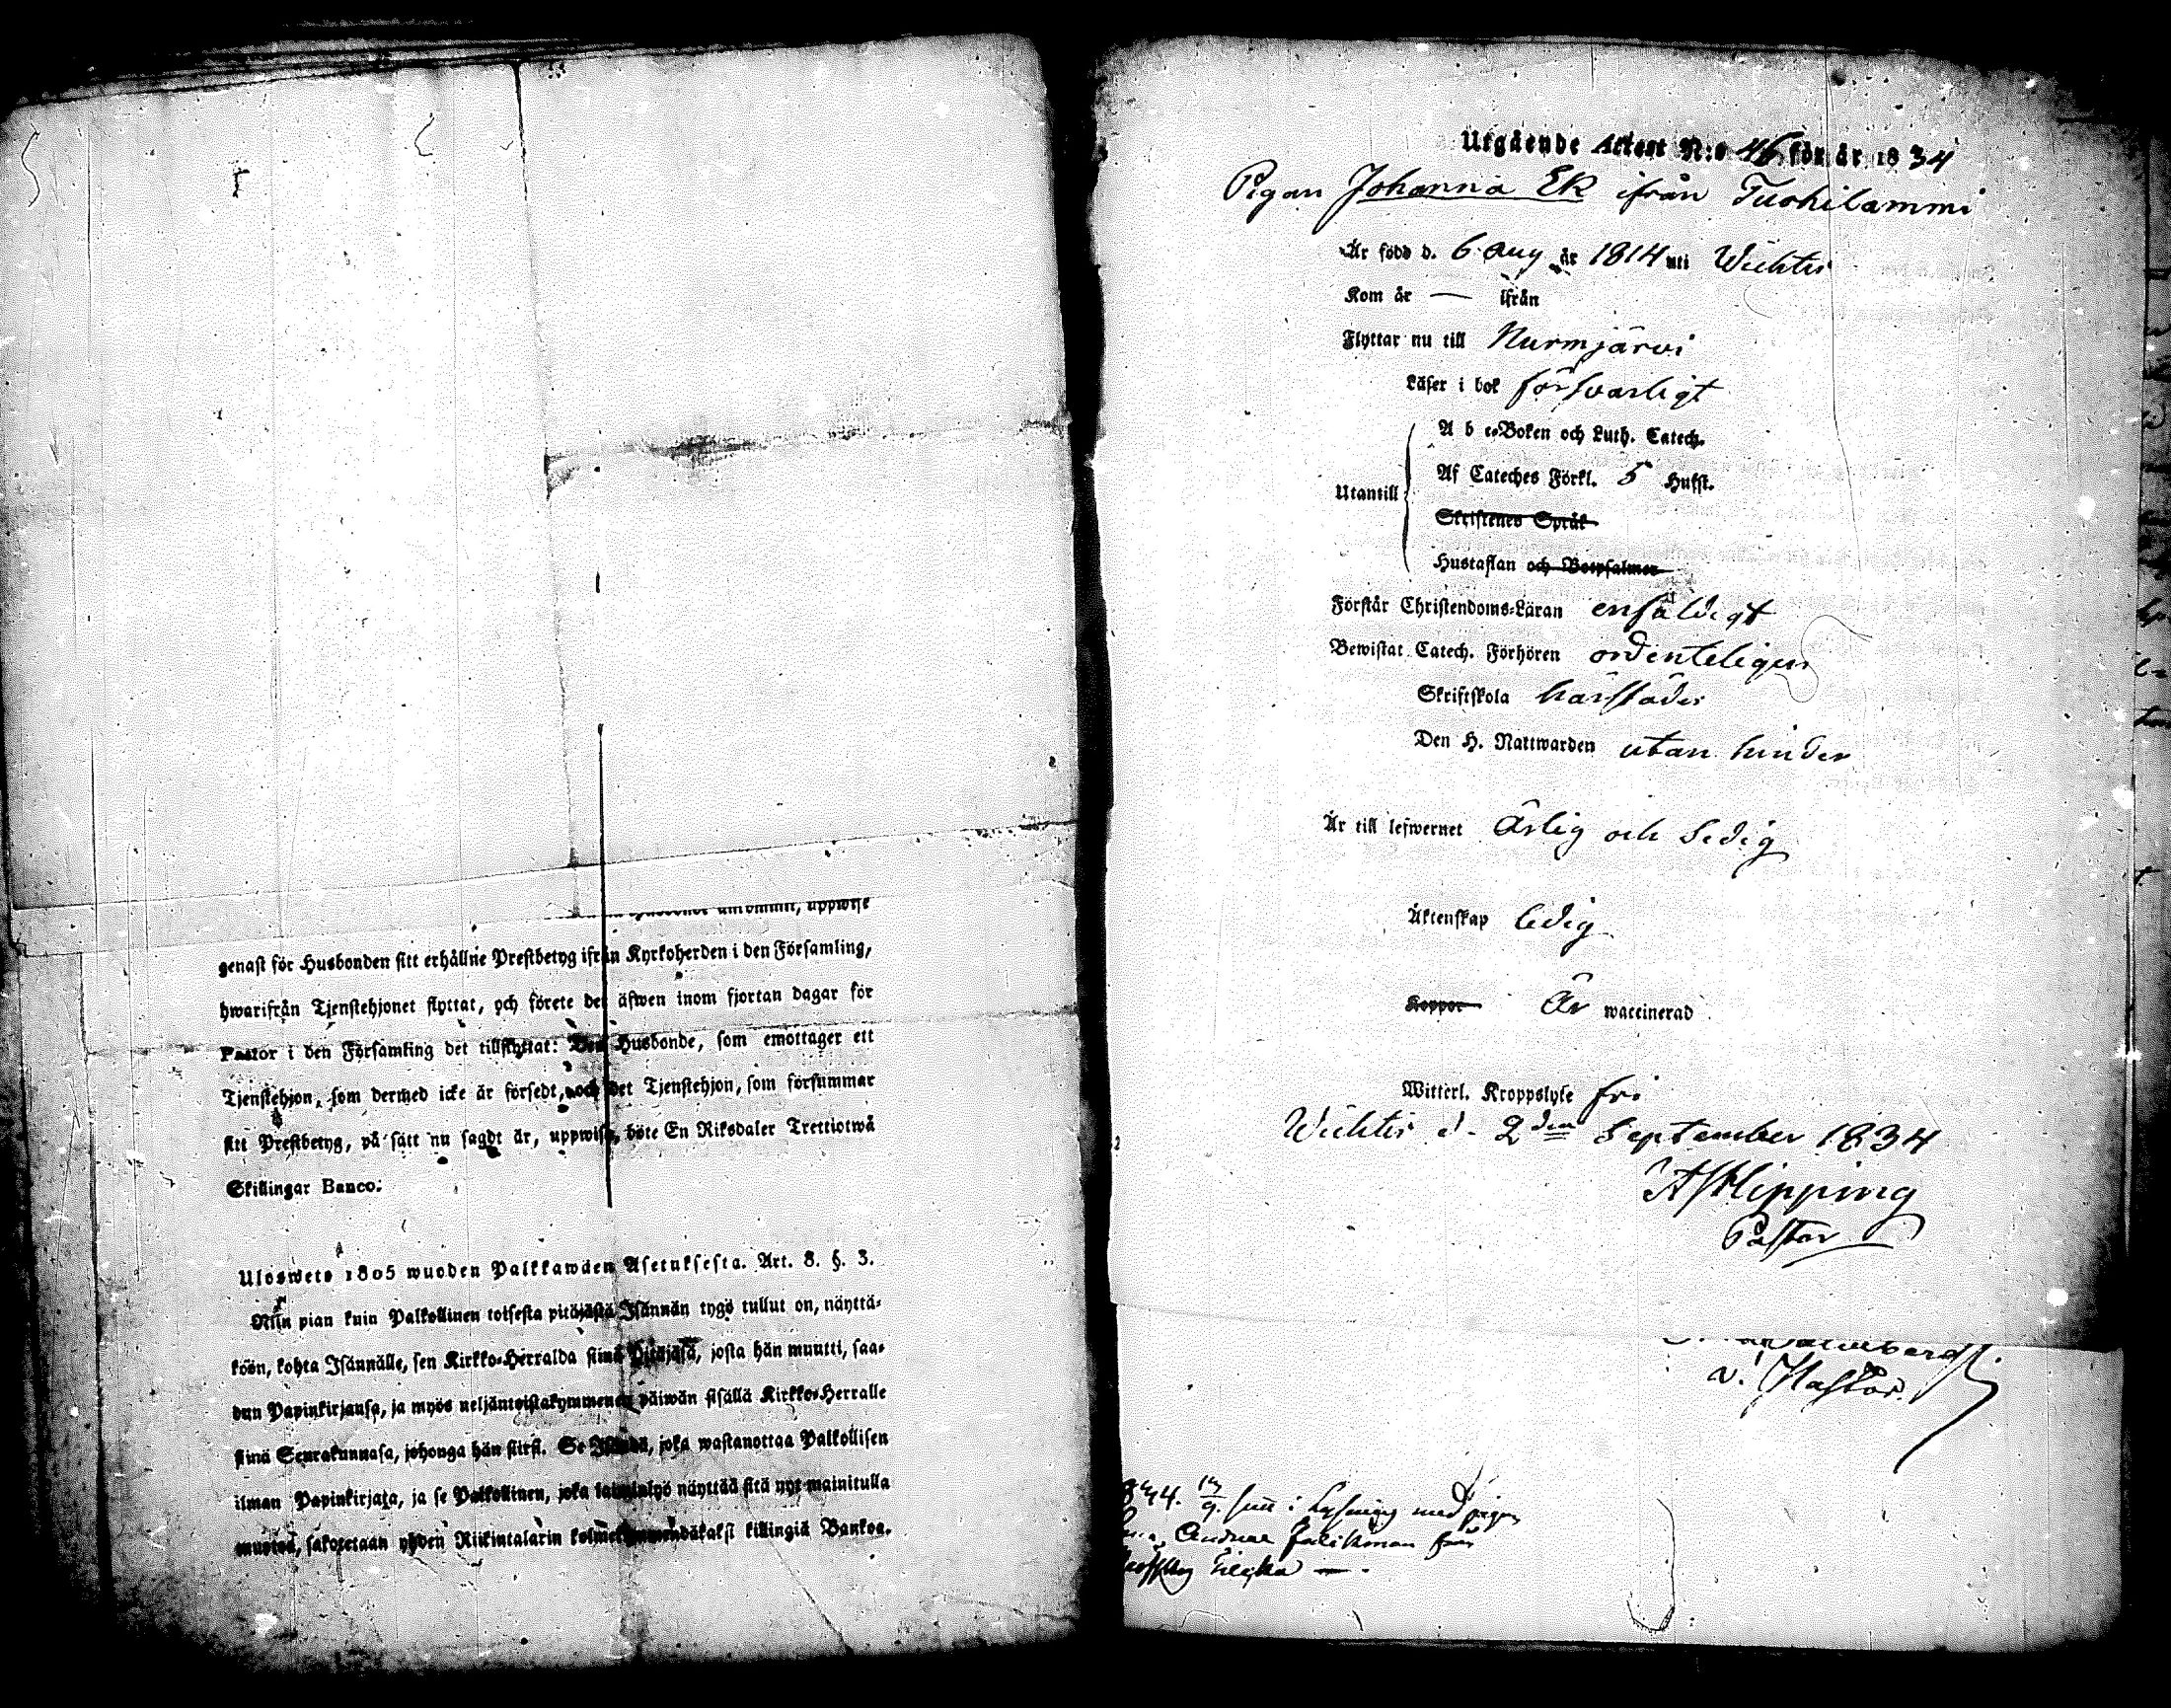 uppwise
genast för Husbonden sitt erhållne Prestbetyg ifrån Kyrkoherden i den Församling,
hwarifrån Tjenstehjonet flyttat, och förete det äfwen inom fjortan dagar för
Pastor i den Församling det tillflyttat: Den Husbonde, som emottager ett
Tjenstehjon, som dermed icke är försedt, och det Tjenstehjon, som försummar
att Prestbetyg, på sätt nu sagdt är, uppwisa, böte En Riksdaler Trettiotwå
Skillingar Banco.
Ulosweto 1805 wuoden Palkkawäen Asetuksesta. Art. 8. §. 3.
Niin pian kuin Palkollinen toisesta pitäjästä Isännän tygö tullut on, näyttä-
köön, kohta Isännälle, sen Kirkko-Herralda siinä Pitäjäsä, josta hän muutti, saa-
dun Papinkirjansa, ja myös neljäntoistakymmenen päiwän sisällä Kirkko-Herralle
siinä Seurakunnasa, johonga hän siirst. Se Isändä, joka wastanottaa Palkollisen
ilman Papinkirjata, ja se Palkollinen, joka laiminlyö näyttää sitä nyt mainitulla
muotoa, sakotetaan yhden Riikintalarin kolmekymmendäkaksi killingiä Bankoa.
Utgående Attest N:o 46 för år 1834
Pigan Johanna Ek ifrån Tuohilammi
Är född d. 6 Aug år 1814 uti Wichtis
Kom år — ifrån
Flyttar nu till Nurmjärvi
Läser i bok försvarligt
A b c-Boken och Luth. Catech.
Af Cateches Förkl. 5 Hufst.
Utantill
Skriftenes Språk
Hustaflan och Botpsalmer
Förstår Christendoms-Läran enfäldigt
Bewistat Catech. Förhören ordenteligen
Skriftskola härstädes
Den H. Nattwarden utan hinder
Är till lefwernet Ärlig och Sedig
Äktenskap ledig
Koppor Är waccinerad
Witterl. Kroppslyte fri
Wichtis d. 2den September 1834
Hipping
Pastor
v. Pastor.
i Lysning med pigan